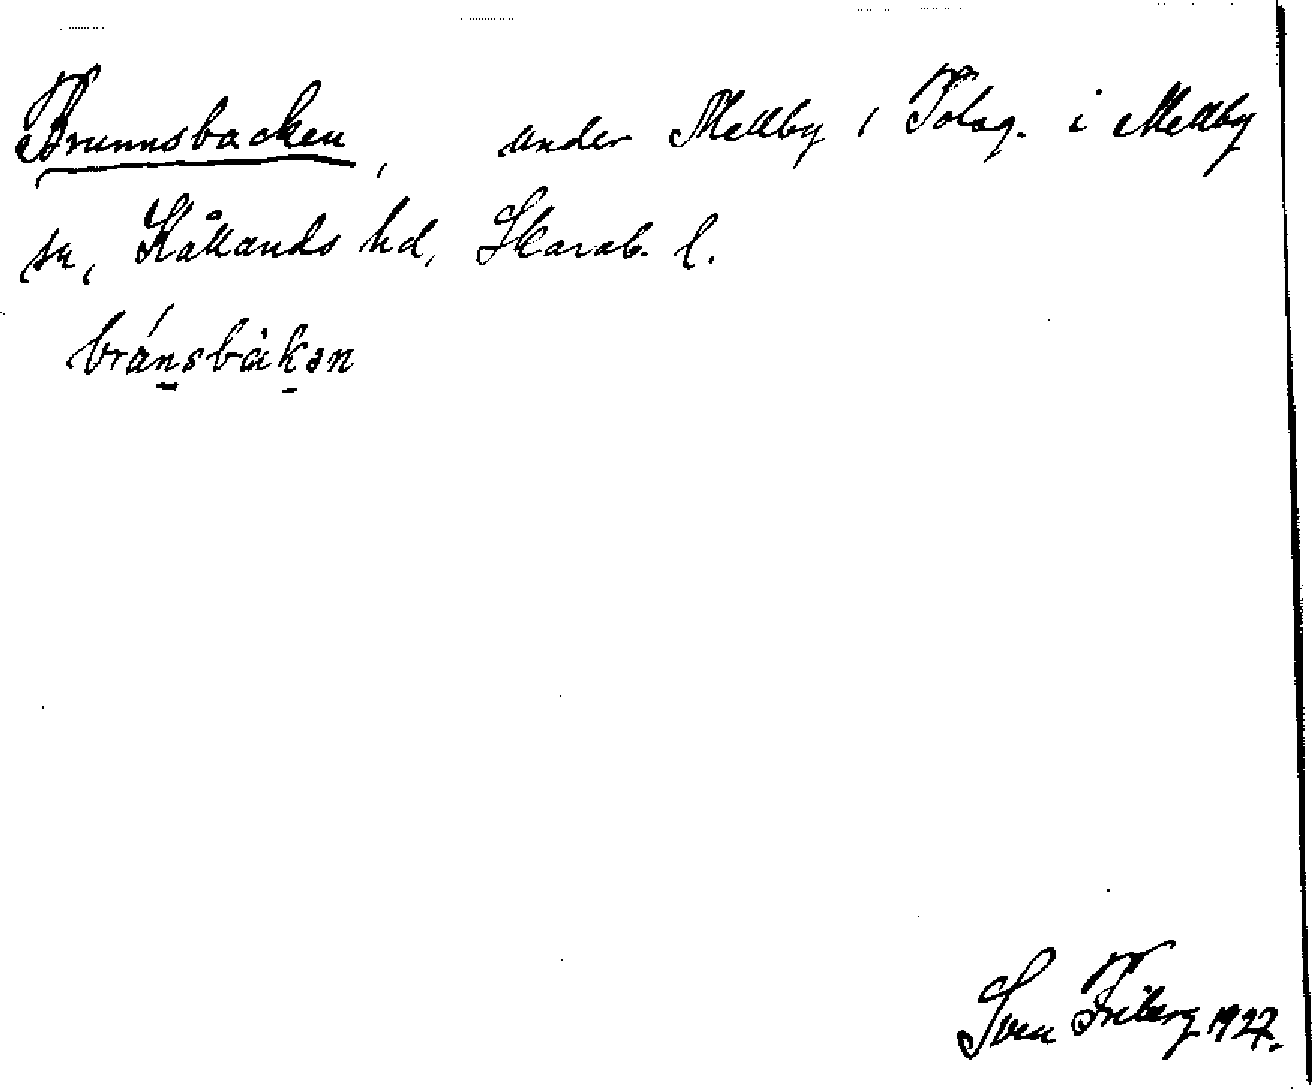 Brunnsbacken, under Mellby 1 Tolsg. i Mellby
sn, Kållands hd, Skarab. l.
brånsbàkən
Sven Friberg 1927.